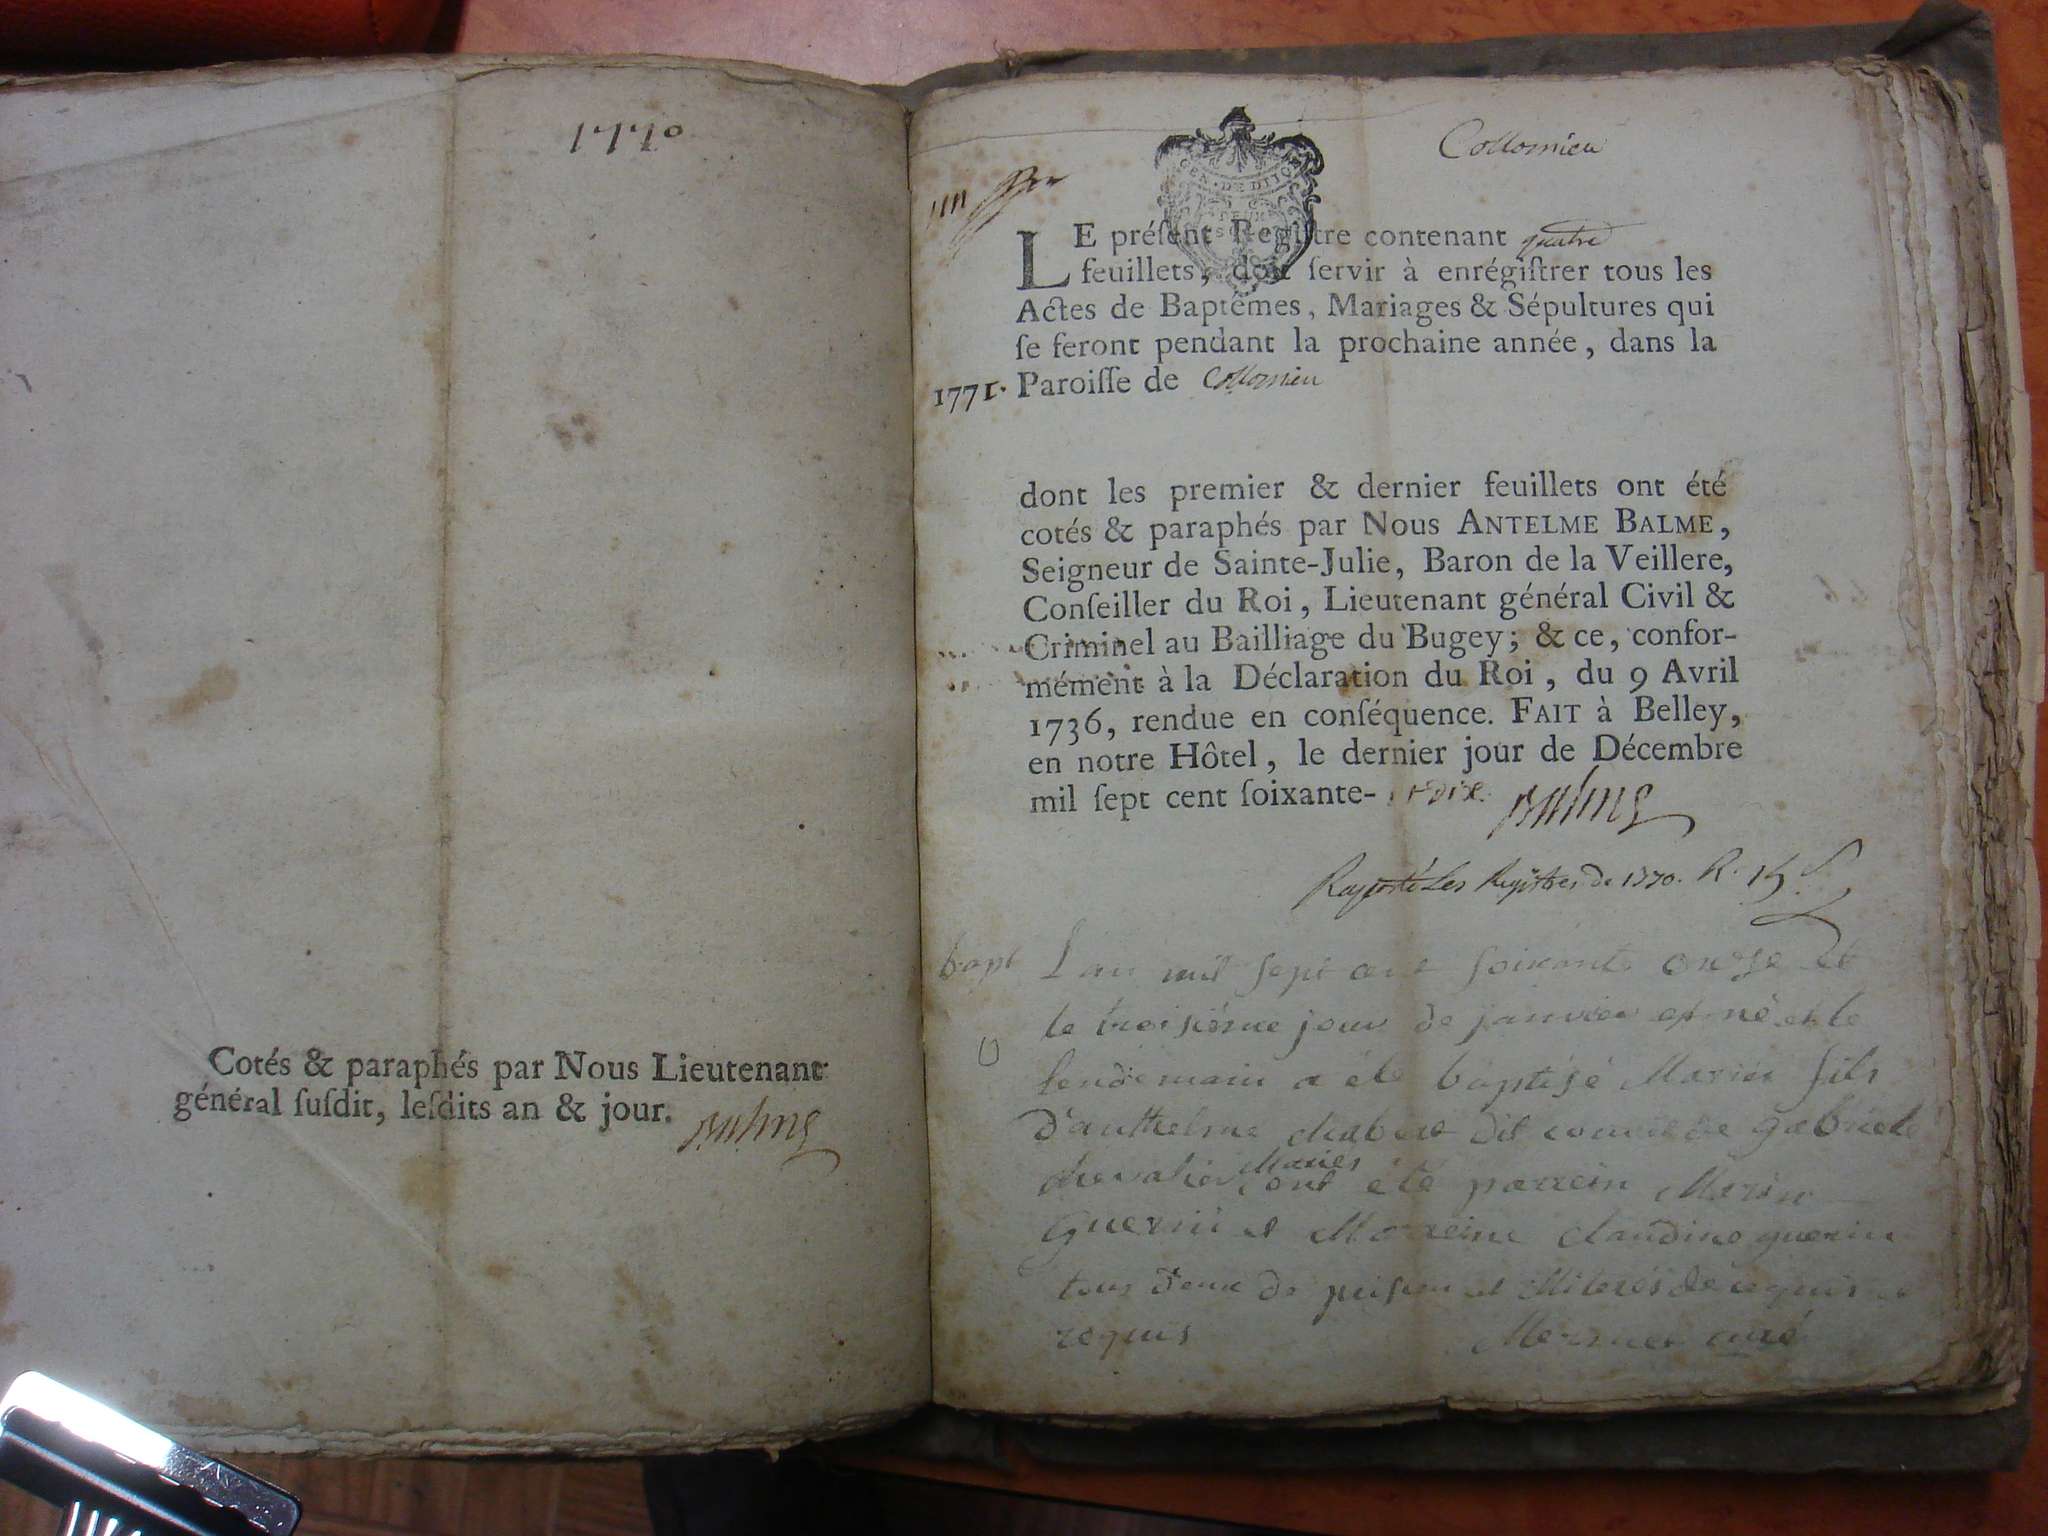 1770
Cotés & paraphés par Nous Lieutenant
général ſuſdit, leſdits an & jour.
Balme
Collomieu
GEN. DE DIJON
DEUX
LE préſent Regiſtre contenant quatre
feuillets, doit ſervir à enrégiſtrer tous les
Actes de Baptêmes, Mariages & Sépultures qui
ſe feront pendant la prochaine année, dans la
1771. Paroiſſe de Collomieu
dont les premier & dernier feuillets ont été
cotés & paraphés par Nous ANTELME BALME,
Seigneur de Sainte-Julie, Baron de la Veillere,
Conſeiller du Roi, Lieutenant général Civil &
Criminel au Bailliage du Bugey; & ce, confor-
mément à la Déclaration du Roi, du 9 Avril
1736, rendue en conſéquence. FAIT à Belley,
en notre Hôtel, le dernier jour de Décembre
mil ſept cent ſoixante- et dix. Balme
Raporté Les Regiſtres de 1770. R. 15 ſ
bapt L'an mil sept cent soixante onze et
le troisiéme jour de janvier est né et le
lendemain a été baptisé Marin fils
d'anthelme chabert dit et de gabriele
chevalier Mariés ont été parrein Marin
guerin et Marreine claudine guerin
tous deux de et de
requis Mermet curé